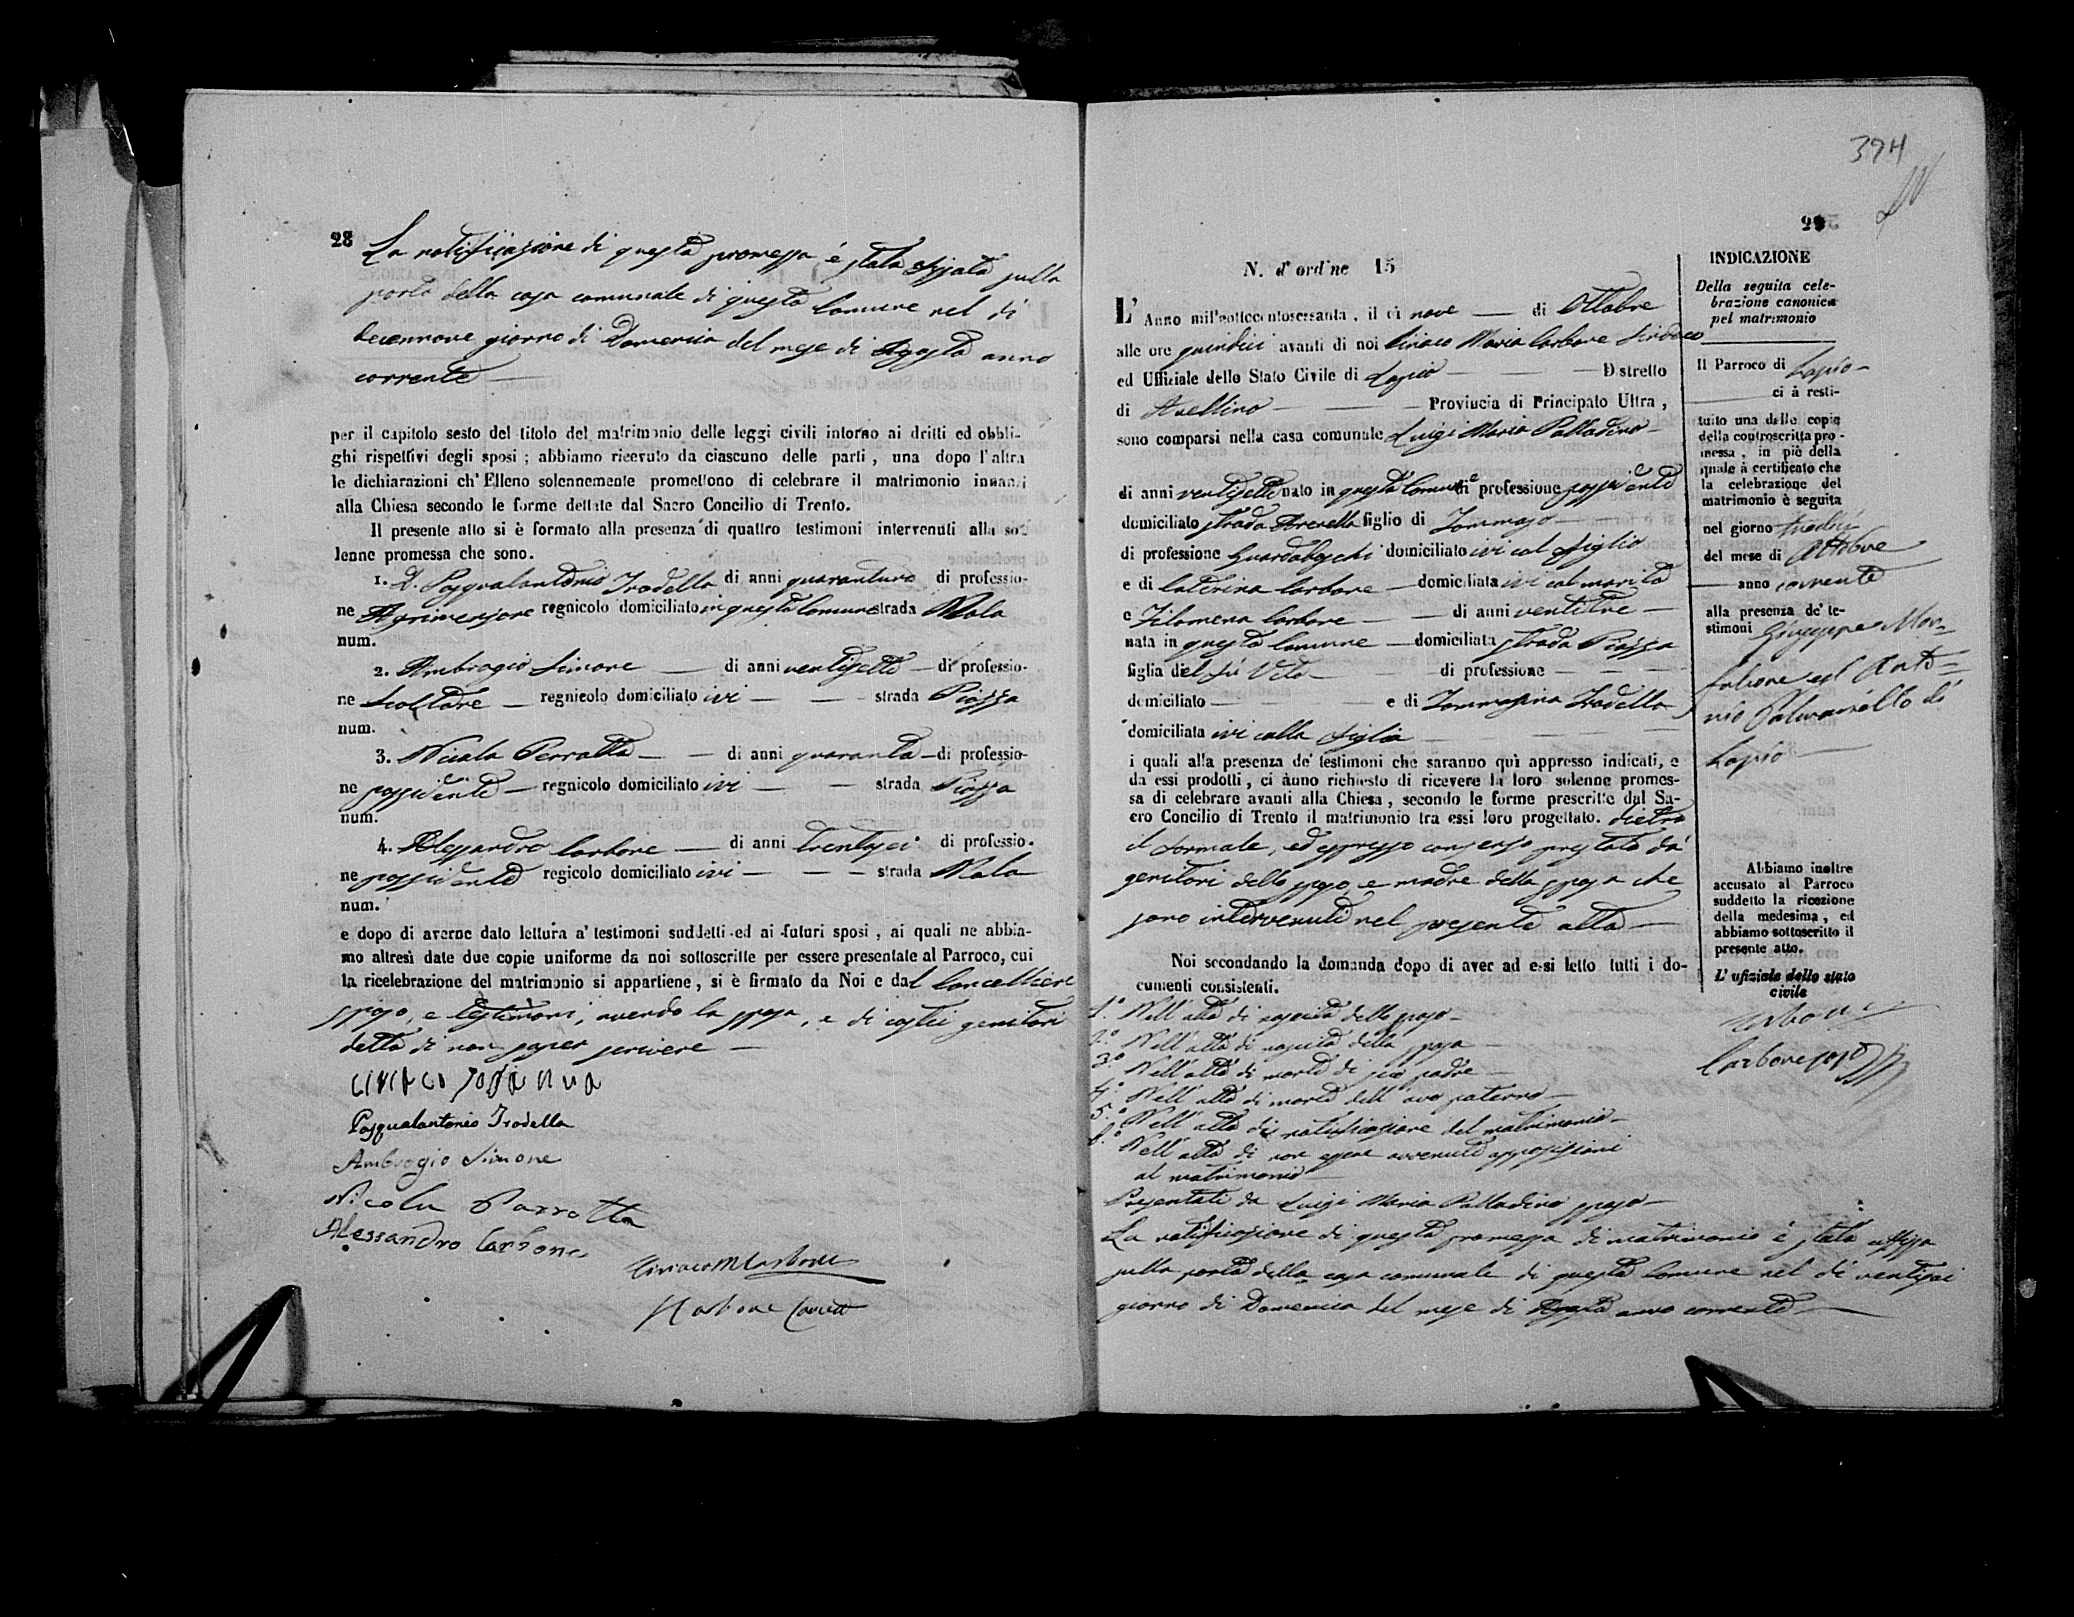 28
La notificazione di questa promessa è stata affissa sulla
porta della casa comunale di questo Comune nel dì
decennove giorno di Domenica del mese di Agosto anno
corrente
per il capitolo sesto del titolo del matrimonio delle leggi civili intorno ai dritti ed obbli-
ghi rispettivi degli sposi ; abbiamo ricevuto da ciascuno delle parti , una dopo l'altra
le dichiarazioni ch'Elleno solennemente promettono di celebrare il matrimonio innanzi
alla Chiesa secondo le forme dettate dal Sacro Concilio di Trento.
Il presente atto si è formato alla presenza di quattro testimoni intervenuti alla so-
lenne promessa che sono.
1. D. Pasqualantonio Trodella di anni quarantuno di professio-
ne Agrimensore regnicolo domiciliato in questo Comune strada Mala
num.
2. Ambrogio Simone di anni ventisette di professio-
ne Scoltore regnicolo domiciliato ivi strada Piazza
num.
3. Nicola Perrotta di anni quaranta di professio-
ne possidente regnicolo domiciliato ivi strada Piazza
num.
4. Alessandro Carbone di anni trentasei di professio-
ne possidente regicolo domiciliato ivi strada Mala
num.
e dopo di averne dato lettura a' testimoni suddetti ed ai futuri sposi , ai quali ne abbia-
mo altresì date due copie uniforme da noi sottoscritte per essere presentate al Parroco, cui
la ricelebrazione del matrimonio si appartiene , si è firmato da Noi e dal Cancelliere
sposo, e testimoni, avendo la sposa, e di costei genitori
detto di non saper scrivere
Pasqualantonio Trodella
Ambrogio Simone
Nicola Parrotta
Alessandro Carbone
Ciriaco M Carbone
Carbone
394
29
N. d'ordine 15
L'Anno mil'ottocentosessanta , il dì nove di Ottobre
alle ore quindici avanti di noi Ciriaco Maria Carbone Sindaco
ed Uffiziale dello Stato Civile di Lapio Distretto
di Avellino Provincia di Principato Ultra ,
sono comparsi nella casa comunale Luigi Maria Palladino
di anni ventisette nato in questo Comune di professione possidente
domiciliato strada Arenella figlio di Tommaso
di professione Guardaboschi domiciliato ivi col figlio
e di Caterina Carbone domiciliata ivi col marito
e Filomena Carbone di anni ventitre
nata in questo Comune domiciliata strada Piazza
figlia del fù Vito di professione
domiciliato e di Tommasina Trodella
domiciliata ivi colla figlia
i quali alla presenza de' testimoni che saranno quì appresso indicati, e
da essi prodotti , ci ànno richiesto di ricevere la loro solenne promes-
sa di celebrare avanti alla Chiesa , secondo le forme prescritte dal Sa-
cro Concilio di Trento il matrimonio tra essi loro progettato. dietro
il formale, ed espresso consenso prestato da'
genitori dello sposo, e madre della sposa che
sono intervenuti nel presente atto
Noi secondando la domanda dopo di aver ad essi letto tutti i do-
cumenti consistenti.
1.° Nell'atto di nascita dello sposo
2.° Nell'atto di nascita della sposa
3.° Nell'atto di morte di suo padre
4.° Nell'atto di morte dell'avo paterno
5.° Nell'atto di notificazione del matrimonio
6.° Nell'atto di non essere avvenute opposizioni
al matrimonio
Presentati da Luigi Maria Palladino sposo
La notificazione di questa promessa di matrimonio è stata affissa
sulla porta della casa comunale di questo Comune nel dì ventisei
giorno di Domenica del mese di Agosto anno corrente
INDICAZIONE
Della seguita cele-
brazione canonica
pel matrimonio
Il Parroco di Lapio
ci à resti-
tuito una delle copie
della controscritta pro-
messa , in piè della
quale à certificato che
la celebrazione del
matrimonio è seguita
nel giorno tredici
del mese di Ottobre
anno corrente
alla presenza de' te-
stimoni Giuseppe Mor-
ed Anto-
nio di
Lapio
Abbiamo inoltre
accusato al Parroco
suddetto la ricezione
della medesima , ed
abbiamo sottoscritto il
presente atto.
L'ufiziale dello stato
civile
Carbone
Carbone